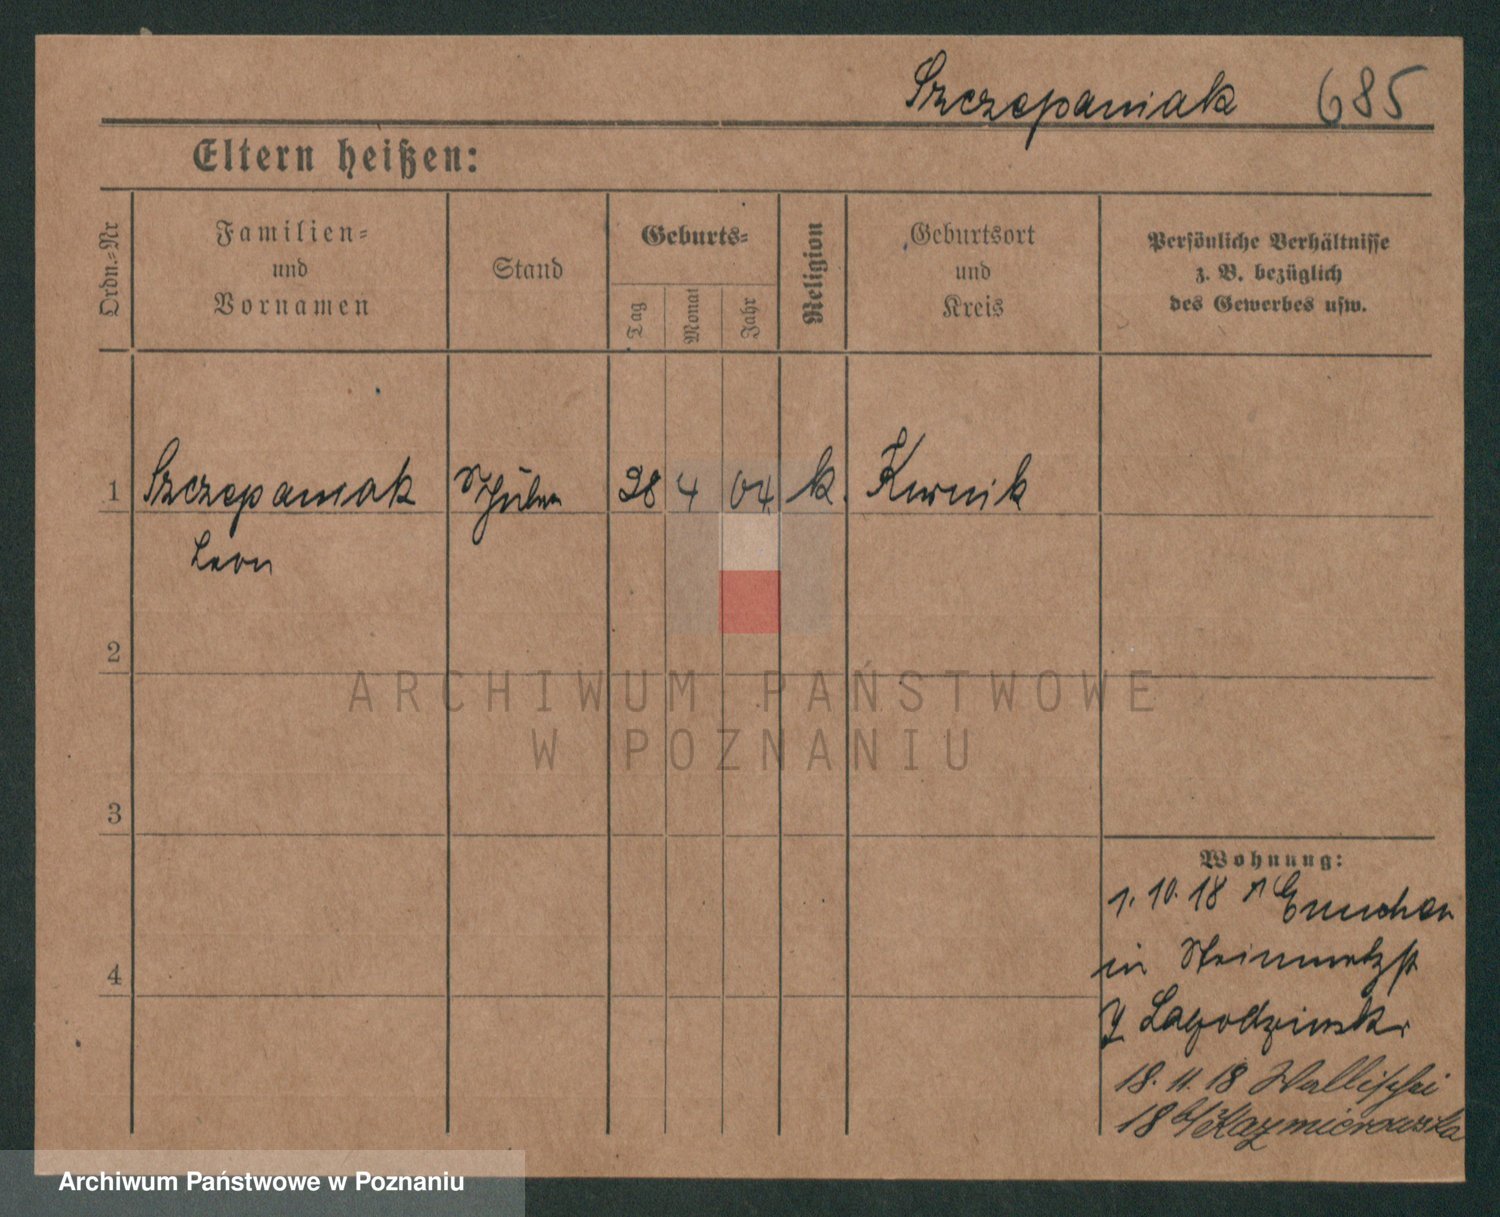 Szczepaniak 685
Eltern heißen:
Ordn.=Nr
Familien=
und
Vornamen
Stand
Geburts=
Tag
Monat
Jahr
Religion
Geburtsort
und
Kreis
Persönliche Verhältnisse
z. B. bezüglich
des Gewerbes usw.
1 Szczepaniak Schüler 28 4 04 k. Kurnik
Leon
2
ARCHIWUM PAŃSTWOWE
W POZNANIU
3
Wohnung:
1. 10. 18
4
in Steinmetzst
Lagodzinski
18. 11. 18 Wallischei
18 b/Kazmierowska
Archiwum Państwowe w Poznaniu